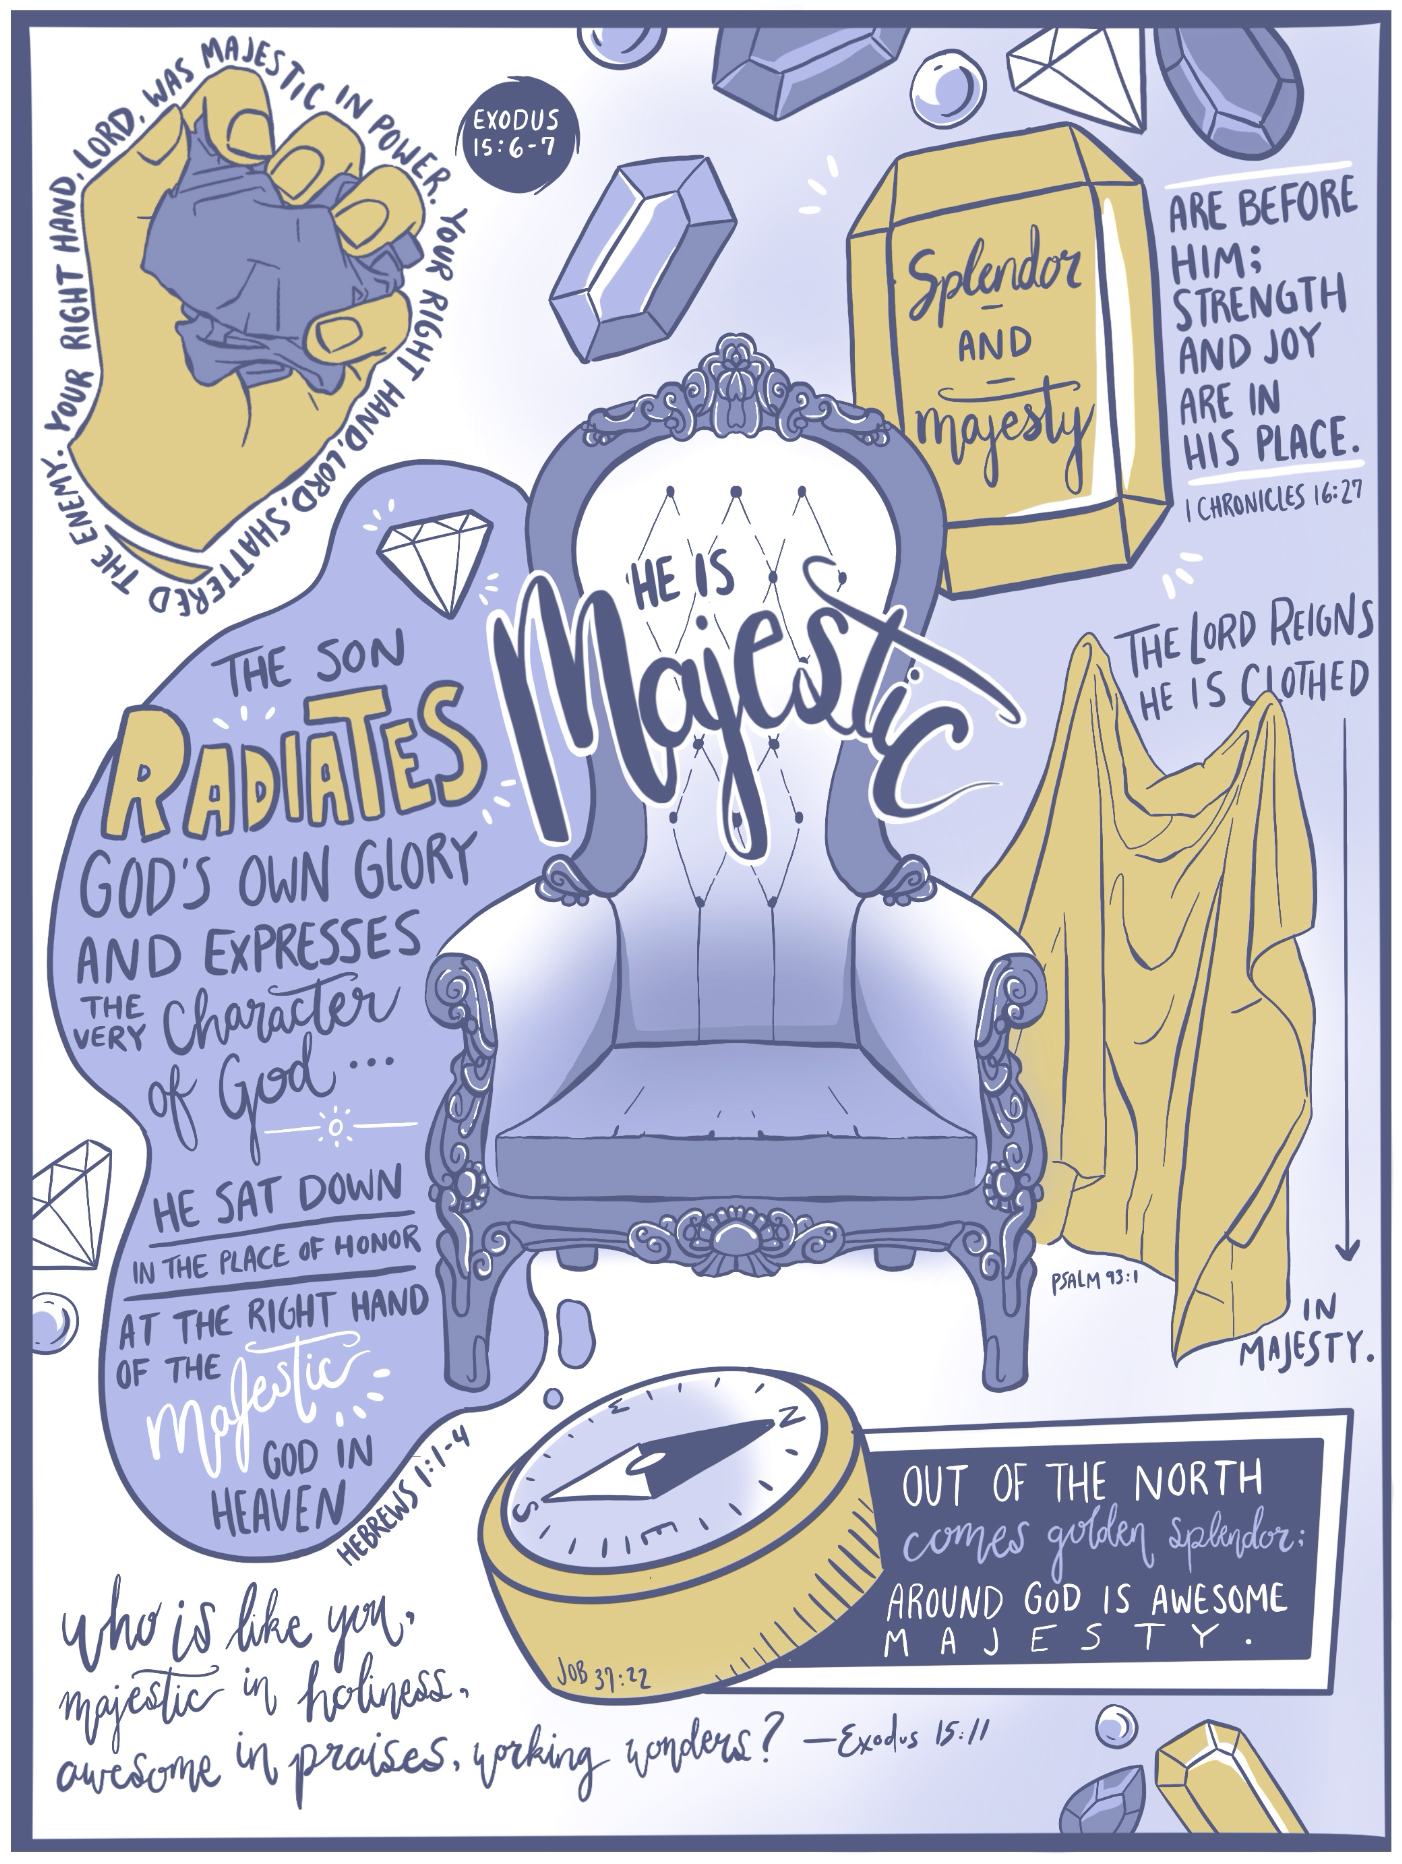 YOUR RIGHT HAND, LORD, WAS MAJESTIC IN POWER. YOUR RIGHT HAND, LORD, SHATTERED THE ENEMY.
EXODUS
15:6-7
Splendor
AND
majesty
ARE BEFORE
HIM;
STRENGTH
AND JOY
ARE IN
HIS PLACE.
1 CHRONICLES 16:27
HE IS
Majestic
THE SON
RADIATES
GOD'S OWN GLORY
AND EXPRESSES
THE
VERY Character
of God...
HE SAT DOWN
IN THE PLACE OF HONOR
AT THE RIGHT HAND
OF THE
Majestic
GOD IN
HEAVEN
HEBREWS 1:1-4
THE LORD REIGNS
HE IS CLOTHED
IN
MAJESTY.
PSALM 93:1
N
E
S
W
JOB 37:22
OUT OF THE NORTH
comes golden splendor;
AROUND GOD IS AWESOME
MAJESTY.
who is like you,
majestic in holiness,
awesome in praises, working wonders? —Exodus 15:11